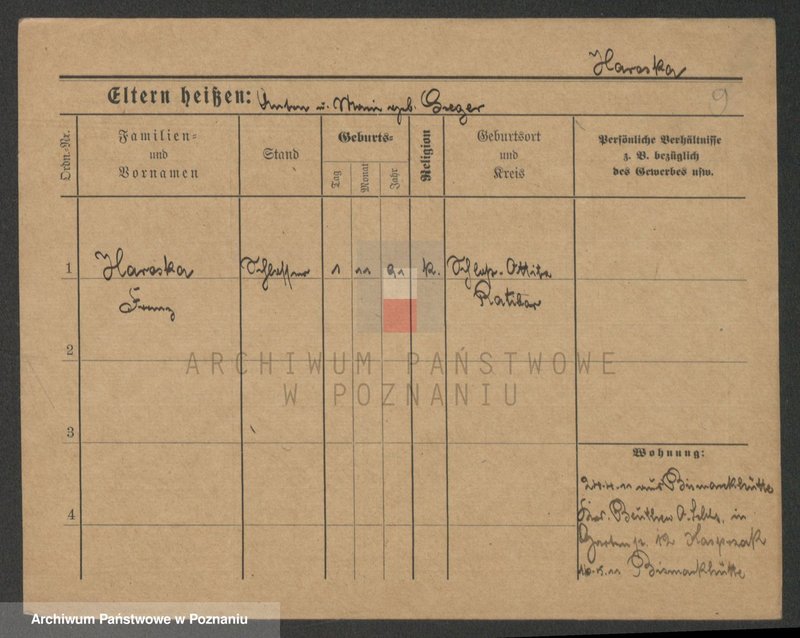 Haraska
9
Eltern heißen: Anton u. Marie geb. Greger
Ordn.-Nr.
Familien- und Vornamen
Stand
Geburts-
Tag
Monat
Jahr
Religion
Geburtsort und Kreis
Persönliche Verhältnisse
z. B. bezüglich
des Gewerbes usw.
1 Haraska Schlosser 1 11 91 k. Schloß-Ottitz
Franz Ratibor
2
ARCHIWUM PAŃSTWOWE
W POZNANIU
3
Wohnung:
aus Bismarckhütte
4
Kr. Beuthen O. Schls. in
Gartenstr. 12 Kasprzak
Bismarckhütte
Archiwum Państwowe w Poznaniu